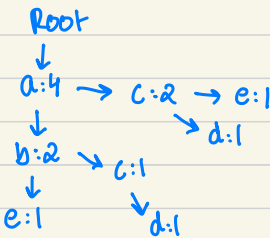 Root
a:4 → c:2 → e:1
d:1
b:2 c:1
e:1 d:1